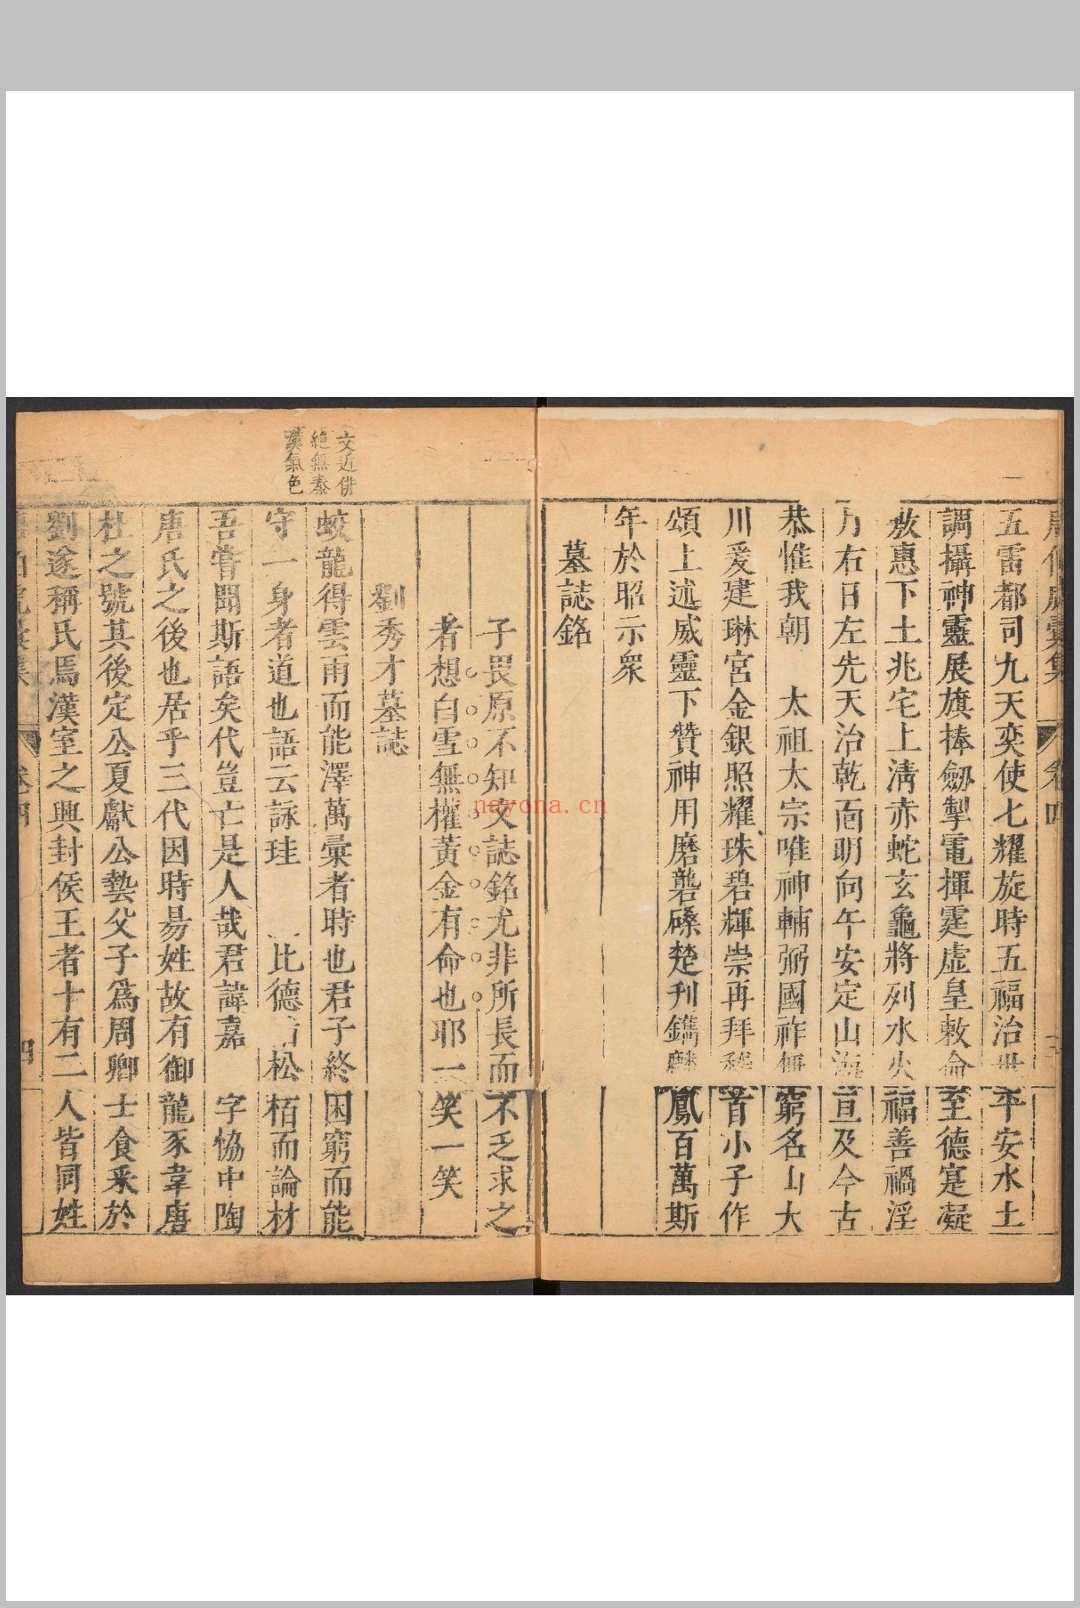 五雷都司九天奕使七耀旋時五福治世平安水土
調攝神靈展旗捧劒掣電揮霆虛皇敕命至德寔凝
敷惠下土兆宅上淸赤蛇玄龜將列水火福善禍淫
月右日左先天治乾面明向午安定山海亘及今古
恭惟我朝 太祖太宗唯神輔弼國祚無窮名山大
川爰建琳宮金銀照耀珠碧輝崇再拜稽首小子作
頌上述威靈下贊神用磨礱磉楚刋鐫麟鳳百萬斯
年於昭示衆
墓誌銘
子畏原不知文誌銘尤非所長而不乏求之
者想白雪無權黃金有命也耶一笑一笑
劉秀才墓誌
文近俳
絶無秦
漢氣色
蛟龍得雲雨而能澤萬彙者時也君子終困窮而能
守一身者道也語云詠珪 比德 松栢而論材
吾嘗聞斯語矣代豈亡是人哉君諱嘉 字協中陶
唐氏之後也居乎三代因時易姓故有御龍豕韋唐
杜之號其後定公夏獻公摯父子爲周卿士食采於
劉遂稱氏焉漢室之興封侯王者十有二人皆同姓
卷四
四
nayona.cn